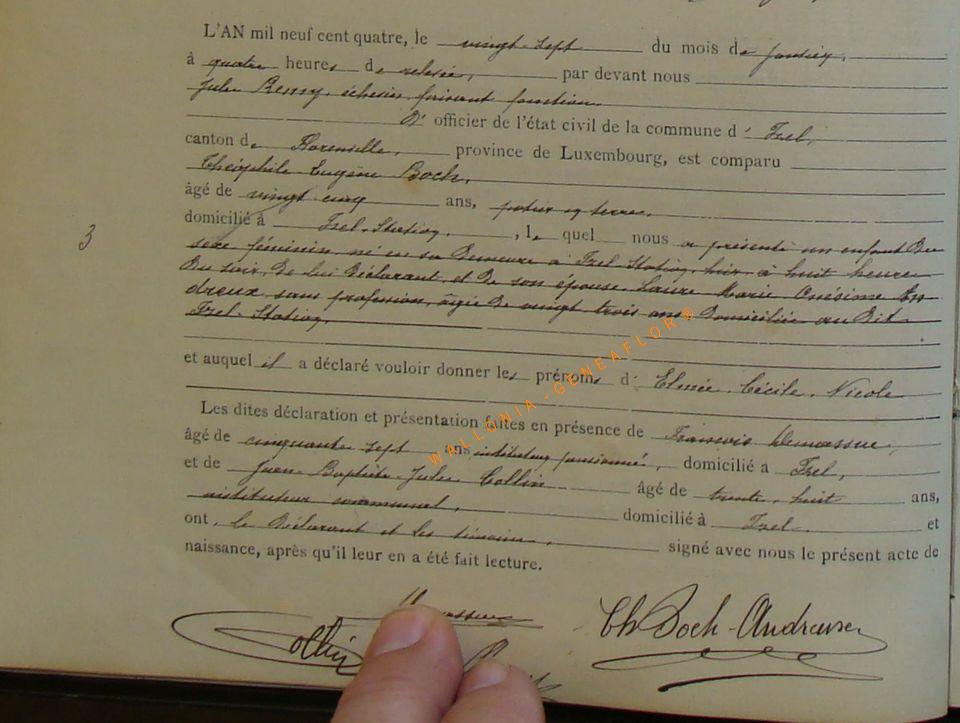 L'AN mil neuf cent quatre, le vingt-sept du mois de janvier,
à quatre heures de relevée, par devant nous
Jules Remy, échevin faisant fonction
d' officier de l'état civil de la commune d' Izel,
canton de Florenville, province de Luxembourg, est comparu
Théophile Eugène Boch,
âgé de vingt cinq ans, potier en terre,
domicilié à Izel-Station, lequel nous a présenté un enfant du
3
sexe féminin, né en sa demeure à Izel Station, hier à huit heures
du soir, de lui déclarant et de son épouse Laure Marie Onésime An
dreux sans profession, âgée de vingt trois ans domiciliée au dit
Izel-Station,
et auquel il a déclaré vouloir donner les prénoms d' Elmée, Cécile, Nicole
Les dites déclaration et présentation faites en présence de François Demassue,
âgé de cinquante sept ans, instituteur pensionné, domicilié à Izel,
et de Jean Baptiste Jules Collin âgé de trente huit ans,
instituteur communal, domicilié à Izel et
ont, le déclarant et les témoins, signé avec nous le présent acte de
naissance, après qu'il leur en a été fait lecture.
Th Boch-Andreux
Collin
WALLONIA - GENEAFLOR®